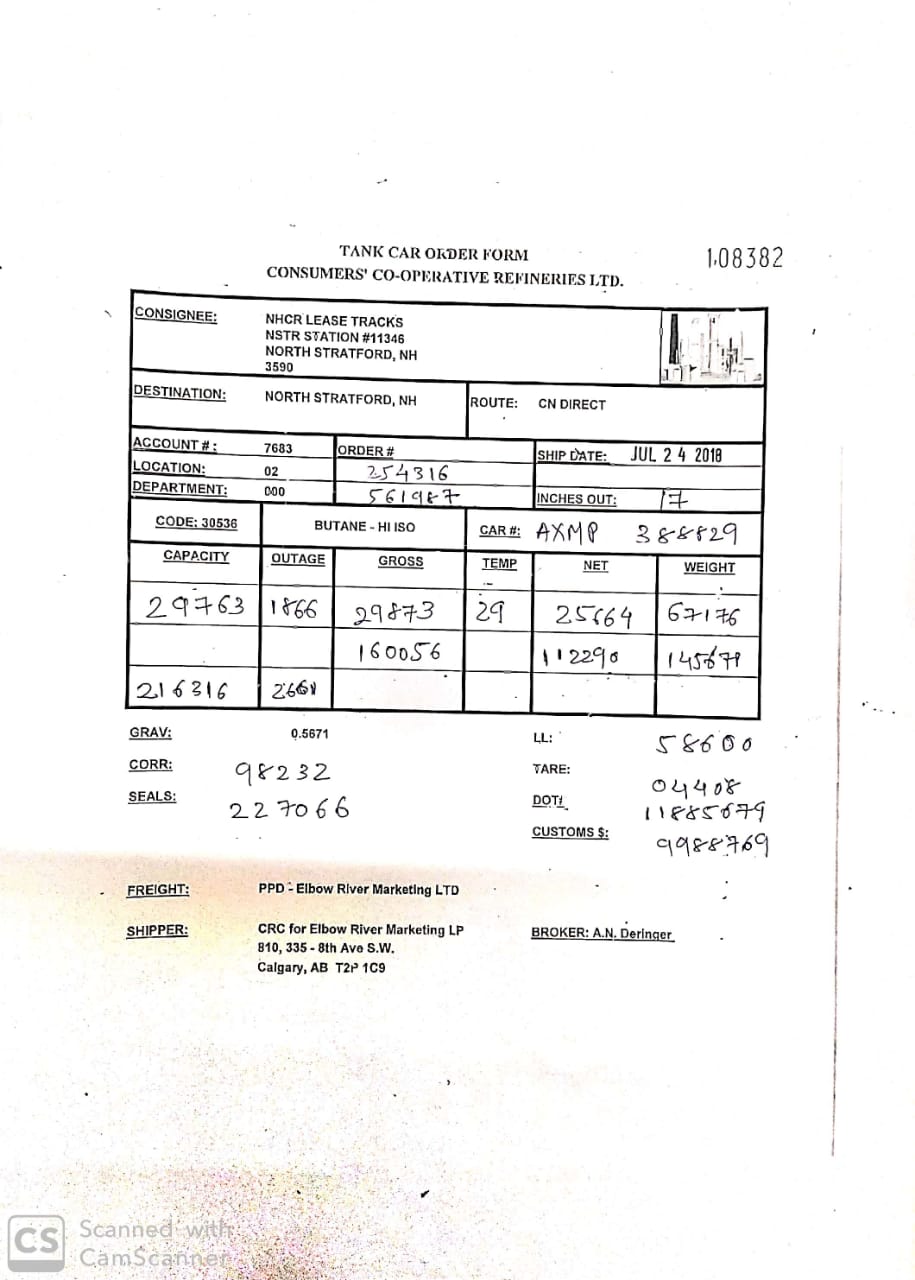 TANK CAR ORDER FORM
108382
CONSUMERS' CO-OPERATIVE REFINERIES LTD.
CONSIGNEE:
NHCR LEASE TRACKS
NSTR STATION #11346
NORTH STRATFORD, NH
3590
DESTINATION: NORTH STRATFORD, NH
ROUTE: CN DIRECT
ACCOUNT #: 7683
ORDER #
SHIP DATE: JUL 24 2018
LOCATION: 02
254316
DEPARTMENT: 000
561987
INCHES OUT: 17
CODE: 30536
BUTANE - HI ISO
CAR #: AXMP 388829
CAPACITY OUTAGE GROSS TEMP NET WEIGHT
29763 1866 29873 29 25664 67176
160056 112290
216316
GRAV: 0.5671
LL: 58600
CORR: 98232
TARE: 04408
SEALS: 227066
DOT: 11885679
CUSTOMS $: 9988769
FREIGHT: PPD - Elbow River Marketing LTD
SHIPPER: CRC for Elbow River Marketing LP
BROKER: A.N. Deringer
810, 335 - 8th Ave S.W.
Calgary, AB T2P 1C9
CS Scanned with
CamScanner